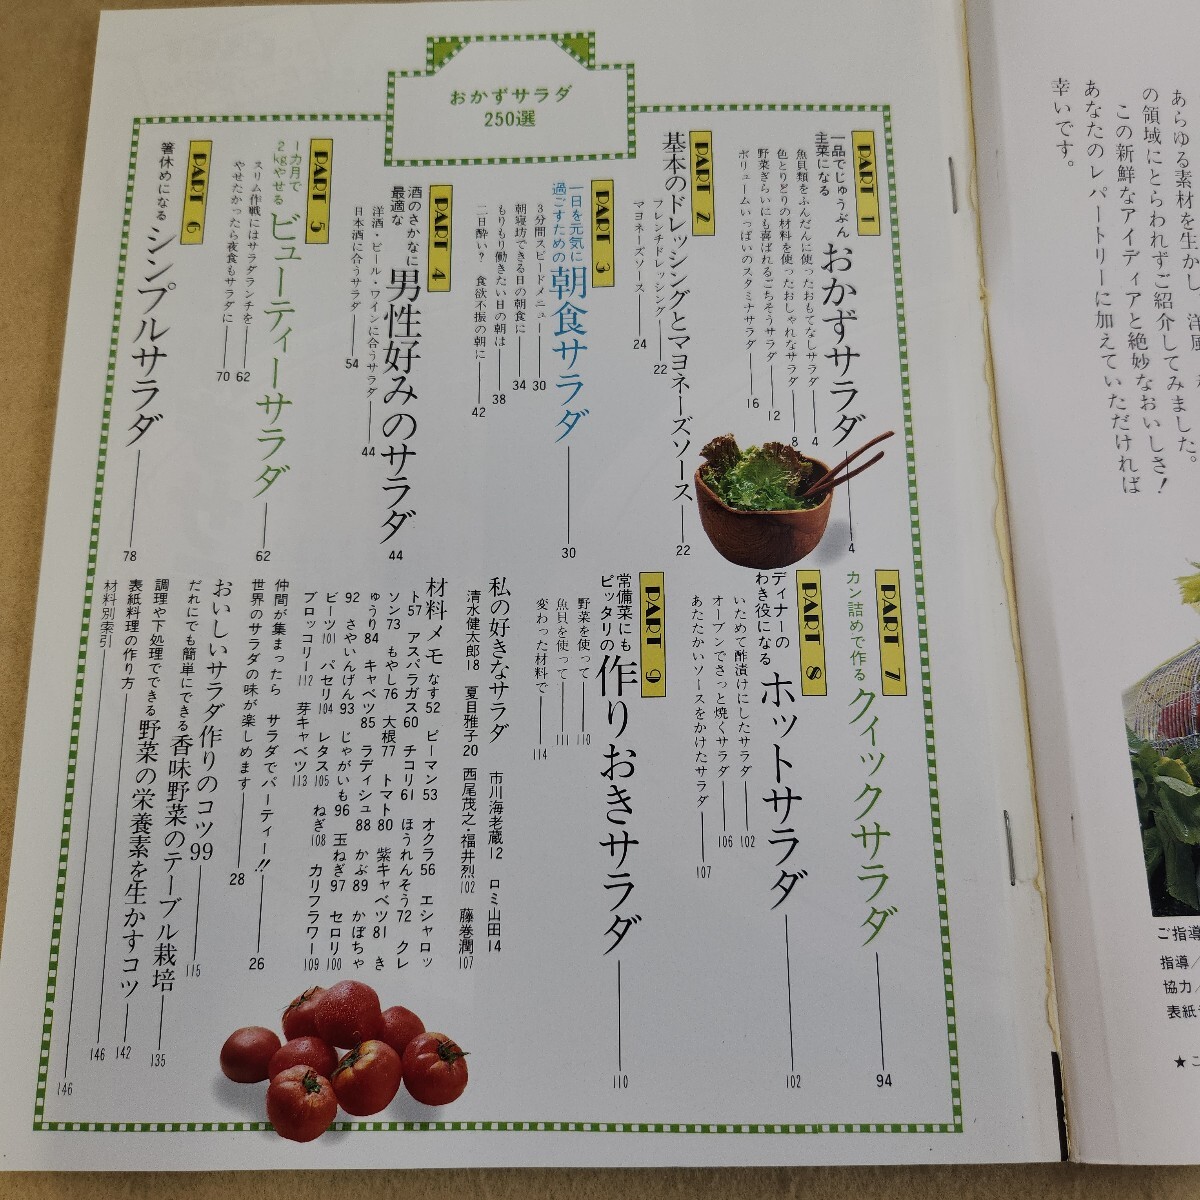 おかずサラダ
250選
PART 1
一品でじゅうぶん
主菜になる
おかずサラダ 4
魚貝類をふんだんに使ったおもてなしサラダ 4
色とりどりの材料を使ったおしゃれなサラダ 8
野菜ぎらいにも喜ばれるごちそうサラダ 12
ボリュームいっぱいのスタミナサラダ 16
PART 2
基本のドレッシングとマヨネーズソース 22
フレンチドレッシング 22
マヨネーズソース 24
PART 3
一日を元気に
過ごすための
朝食サラダ 30
3分間スピードメニュー 30
朝寝坊できる日の朝食に 34
もりもり働きたい日の朝は 38
二日酔い？ 食欲不振の朝に 42
PART 4
酒のさかなに
最適な
男性好みのサラダ 44
洋酒・ビール・ワインに合うサラダ 44
日本酒に合うサラダ 54
PART 5
一カ月で
2kgやせる
ビューティーサラダ 62
スリム作戦にはサラダランチを 62
やせたかったら夜食もサラダに 70
PART 6
箸休めになる
シンプルサラダ 78
PART 7
カン詰めで作る
クイックサラダ 94
PART 8
ディナーの
わき役になる
ホットサラダ 102
いためて酢漬けにしたサラダ 102
オーブンでさっと焼くサラダ 106
あたたかいソースをかけたサラダ 107
PART 9
常備菜にも
ピッタリの
作りおきサラダ 110
野菜を使って 110
魚貝を使って 111
変わった材料で 114
私の好きなサラダ 市川海老蔵12 ロミ山田14
清水健太郎18 夏目雅子20 西尾茂之・福井烈102 藤巻潤107
材料メモ なす52 ピーマン53 オクラ56 エシャロッ
ト57 アスパラガス60 チコリ61 ほうれんそう72 クレ
ソン73 もやし76 大根77 トマト80 紫キャベツ81 き
ゅうり84 キャベツ85 ラディシュ88 かぶ89 かぼちゃ
92 さやいんげん93 じゃがいも96 玉ねぎ97 セロリ100
ビーツ101 パセリ104 レタス105 ねぎ108 カリフラワー109
ブロッコリー112 芽キャベツ113
仲間が集まったら サラダでパーティー!! 26
世界のサラダの味が楽しめます 28
おいしいサラダ作りのコツ99
だれにでも簡単にできる香味野菜のテーブル栽培 115
調理や下処理でできる野菜の栄養素を生かすコツ 135
表紙料理の作り方 142
材料別索引 146
146
あらゆる素材を生かし、洋風
の領域にとらわれずご紹介してみました。
この新鮮なアイディアと絶妙なおいしさ！
あなたのレパートリーに加えていただければ
幸いです。
ご指導
指導/
協力/
表紙
★こ